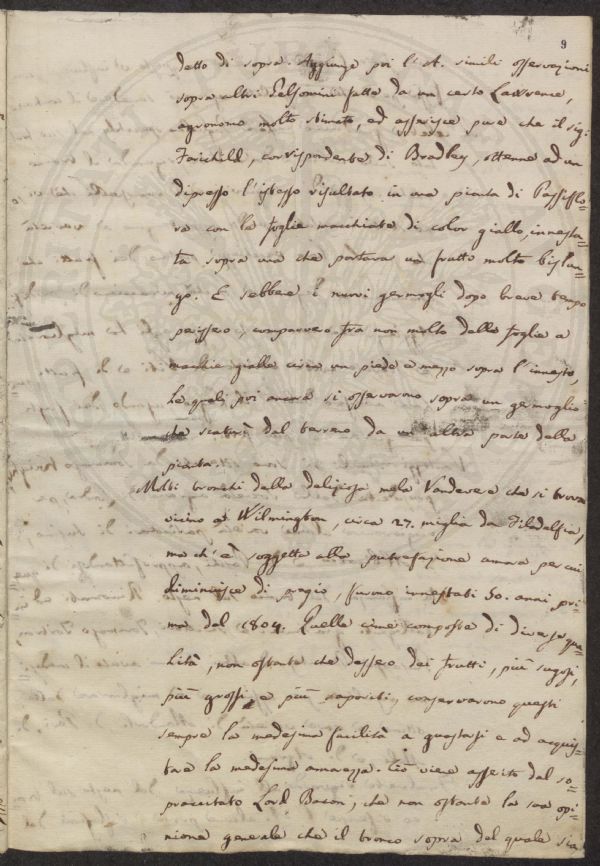 9
detto di sopra. Aggiunge poi l'A. simili osservazioni
sopra altri Gelsomini fatte da un certo Lawrence,
agronomo molto stimato, ed asserisce pure che il sigr
Fairchild, corrispondente di Bradley, ottenne ad un
dipresso l'istesso risultato in una pianta di Passiflo=
ra con le foglie macchiate di color giallo, innesta=
ta sopra una che portava un frutto molto bislun=
go. E sebbene i nuovi germogli dopo breve tempo
perissero, comparvero fra non molto delle foglie a
macchie gialle circa un piede e mezzo sopra l'innesto,
le quali poi ancora si osservarono sopra un germoglio
che scaturì dal terreno da un altra parte della
pianta.
Molti tronchi della deliziosa mela Vandevere che si trova
vicino a Wilmington, circa 27. miglia da Filadelfia,
ma ch'è soggetta alla putrefazione amara per cui
diminuisce di pregio, furono innestati 50. anni pri=
ma del 1804. Quelle cime composte di diverse qua=
lità, non ostante che dessero dei frutti, più sugosi,
più grossi, e più saporiti, conservarono questi
sempre la medesima facilità a guastarsi e ad acquis=
tare la medesima amarezza. Ciò viene asserito dal so=
praccitato Lord Bacon, che non ostante la sua opi=
nione generale che il tronco sopra del quale sia